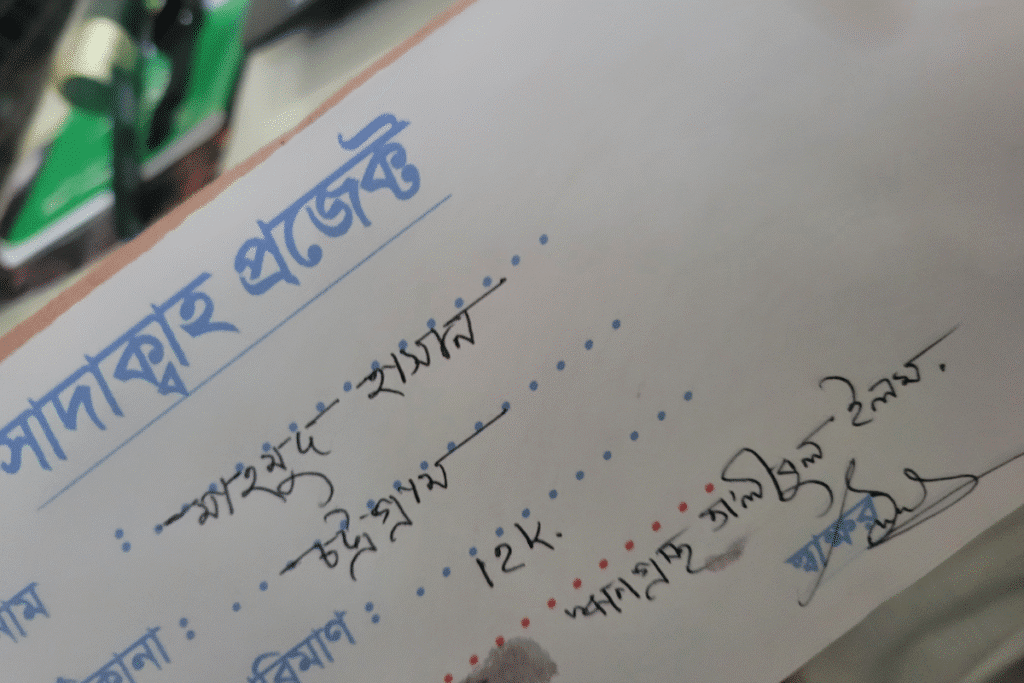 সাদাক্বাহ প্রজেক্ট
নাম : মাহমুদ হাসান
ঠিকানা : চট্টগ্রাম
পরিমাণ : 12K.
তালিবুল ইলম.
স্বাক্ষর